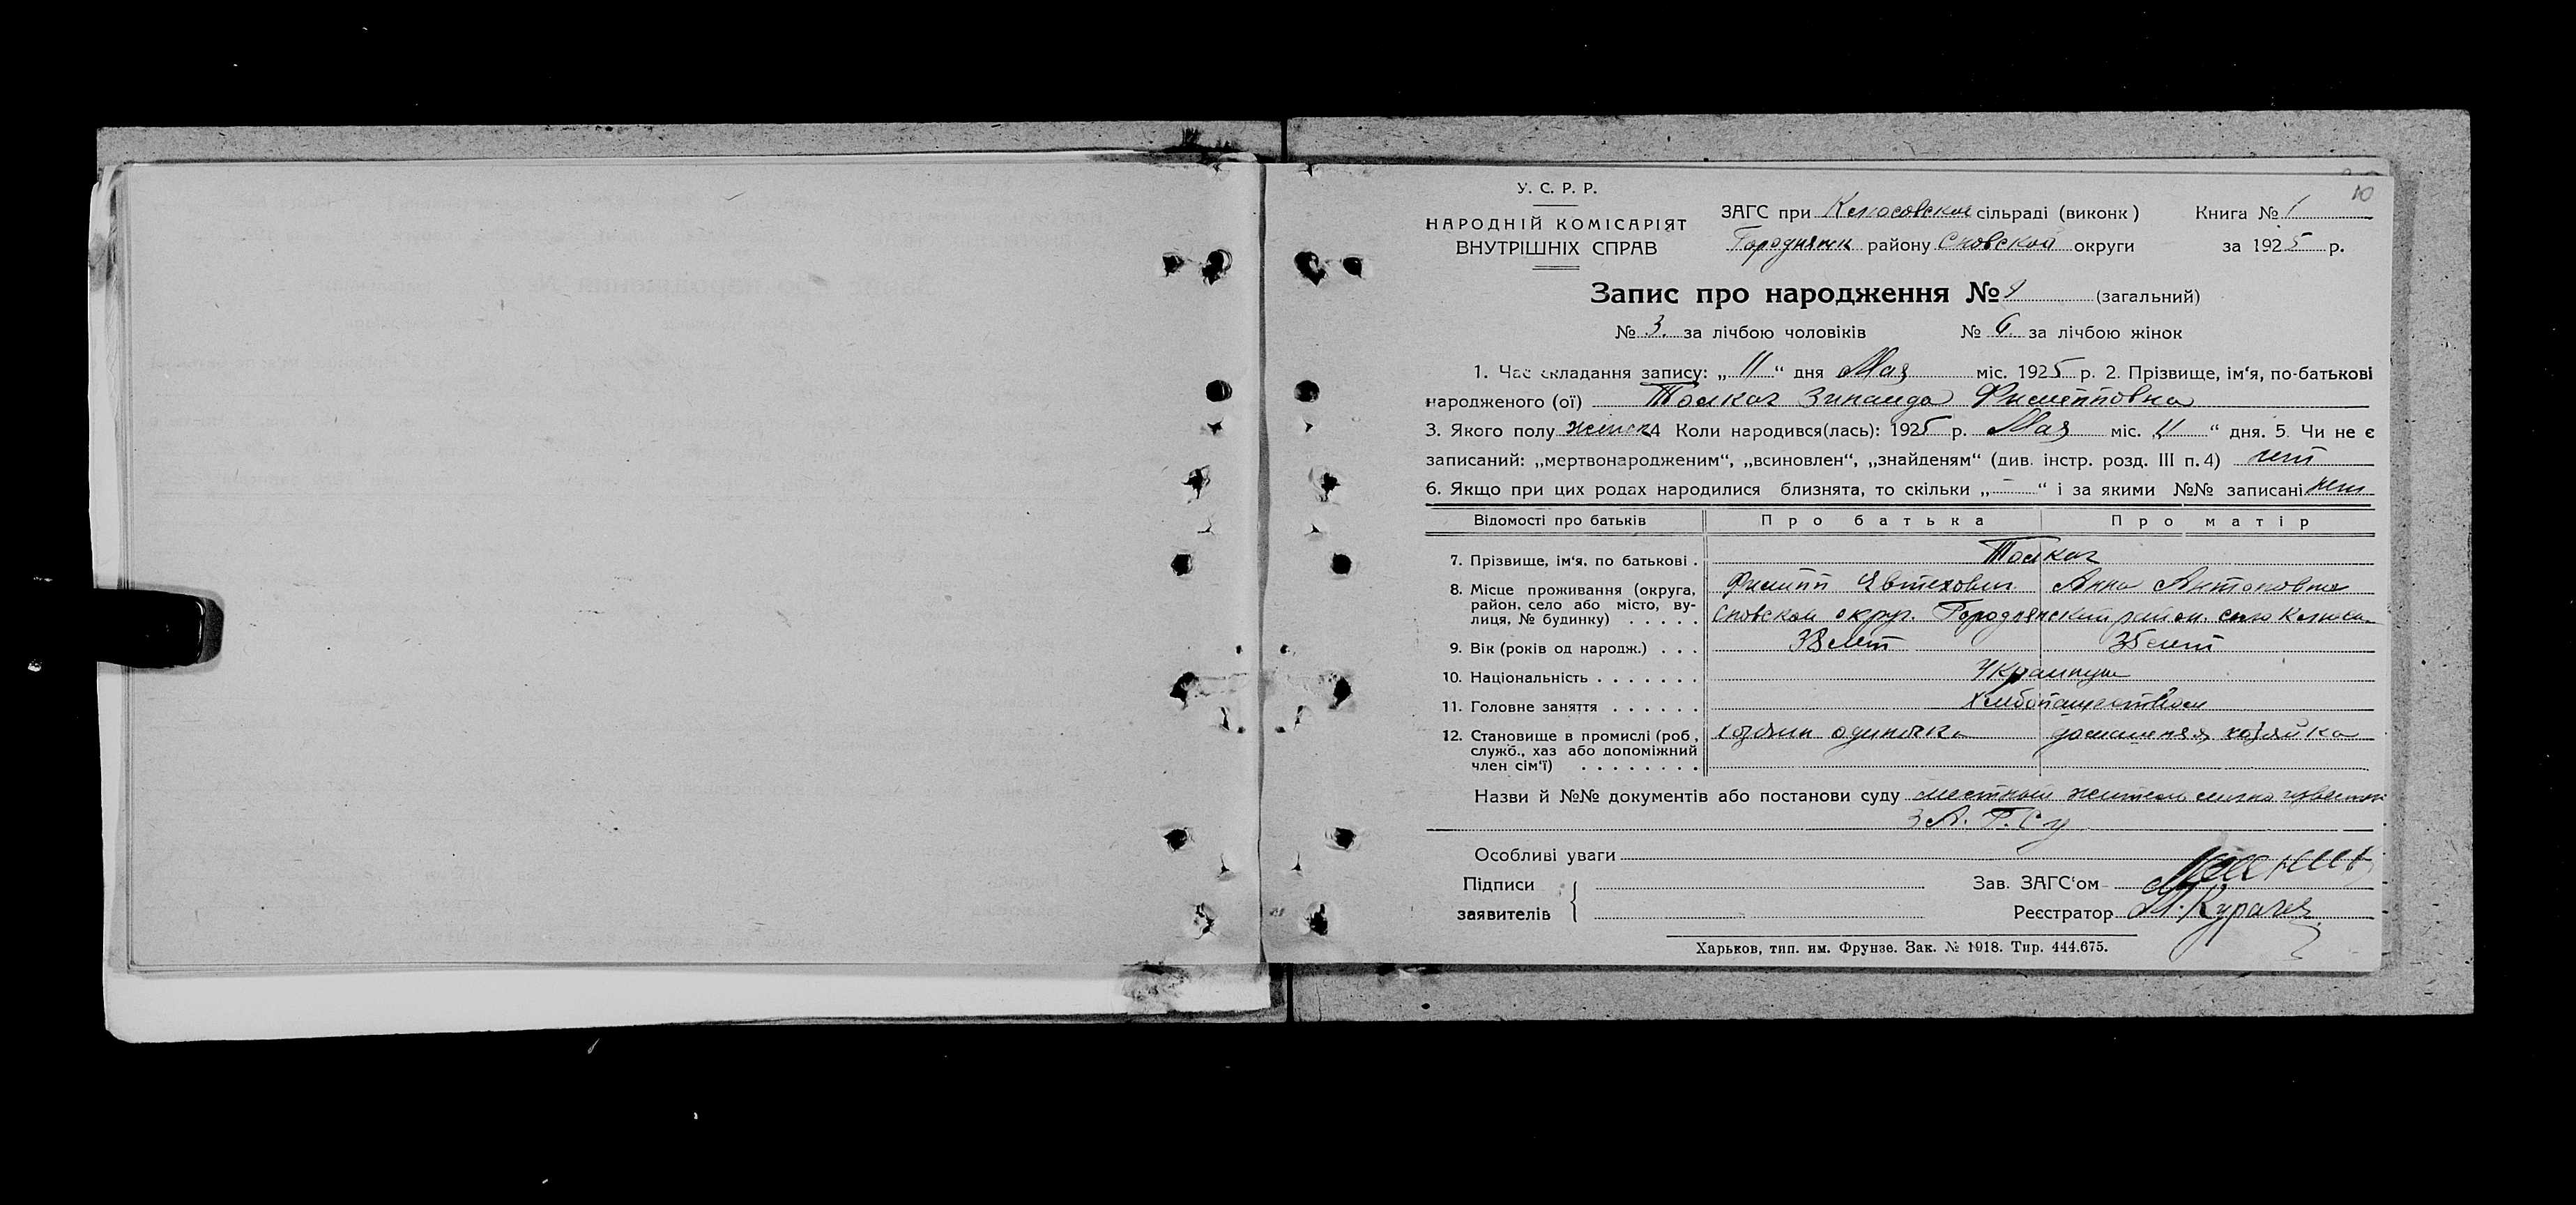 10
У. С. Р. Р.
НАРОДНІЙ КОМІСАРІЯТ
ВНУТРІШНІХ СПРАВ
ЗАГС при Клюсовской сільраді (виконк) Книга № 1
Городнянск району Сновской округи за 1925 р.
Запис про народження № 9 (загальний)
№ 3. за лічбою чоловіків № 6. за лічбою жінок
1. Час складання запису: „11“ дня Мая міс. 1925 р. 2. Прізвище, ім‘я, по-батькові
народженого (ої) Толкач Зинаида Филипповна
3. Якого полу женск 4 Коли народився(лась): 1925 р. Мая міс. 11 “ дня. 5. Чи не є
записаний: „мертвонародженим“, „всиновлен“, „знайденям“ (див. інстр. розд. III п. 4) нет
6. Якщо при цих родах народилися близнята, то скільки „-“ і за якими №№ записані нет
Відомості про батьків Про батька Про матір
7. Прізвище, ім‘я, по батькові . Толкач
Филипп Евтехович Анна Антоновна
8. Місце проживання (округа, район, село або місто, вулиця, № будинку) . . . . . Сновской округ. Городнянский район. село Клюсы
9. Вік (років од народж.) . . . 38 лет 35 лет
10. Національність . . . . . . . Украинцы
11. Головне заняття . . . . . . Хлебопашеством
12. Становище в промислі (роб, служб., хаз або допоміжний член сім‘ї) . . . . . . . . хозяин одиночка домашняя хозяйка
Назви й №№ документів або постанови суду местный житель лично известен
ЗА.Г.Су
Особливі уваги
Підписи
заявителів
Зав. ЗАГС‘ом
Реєстратор М.
Харьков, тип. им. Фрунзе. Зак. № 1918. Тир. 444.675.